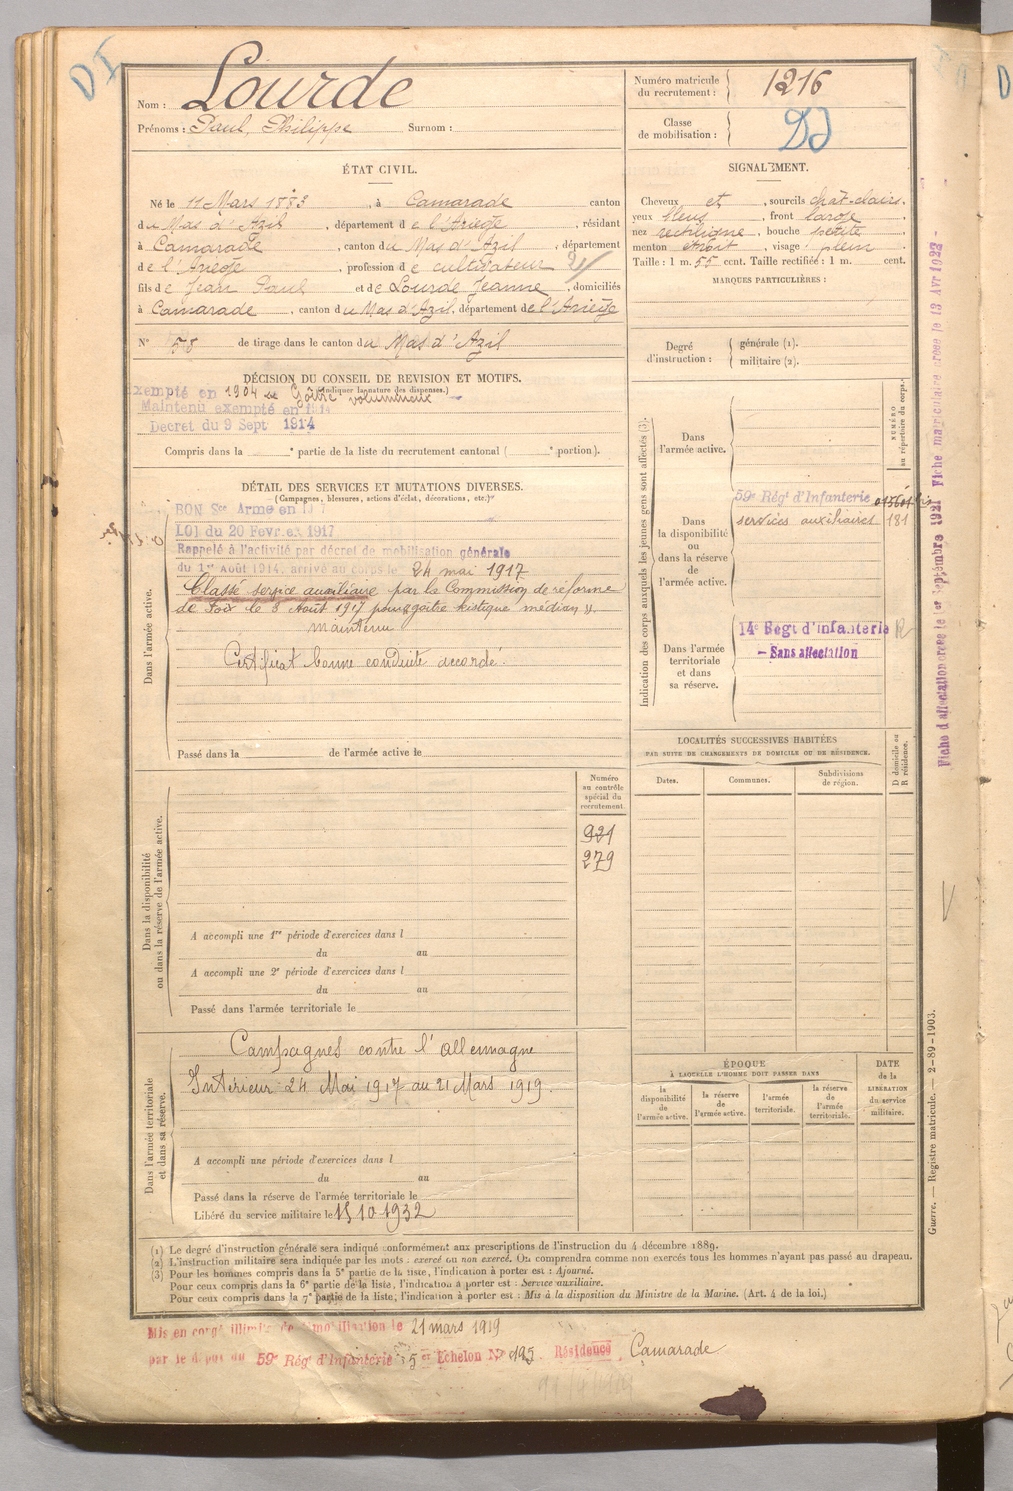 DI
Nom : Lourde
Prénoms : Paul, Philippe Surnom :
Numéro matricule du recrutement : 1216
Classe de mobilisation :
ÉTAT CIVIL.
Né le 11 Mars 1883, à Camarade canton
du Mas d'Azil, département de l'Ariège, résidant
à Camarade, canton du Mas d'Azil, département
de l'Ariège, profession de cultivateur
fils de Jean Paul et de Lourde Jeanne, domiciliés
à Camarade, canton du Mas d'Azil, département de l'Ariège
N° 78 de tirage dans le canton du Mas d'Azil
SIGNALEMENT.
Cheveux et, sourcils chât-clairs,
yeux bleus, front large,
nez rectiligne, bouche petite,
menton étroit, visage plein
Taille : 1 m. 55 cent. Taille rectifiée : 1 m. cent.
MARQUES PARTICULIÈRES :
Degré d'instruction : générale (1).
militaire (2).
DÉCISION DU CONSEIL DE REVISION ET MOTIFS.
(Indiquer la nature des dispenses.)
Exempté en 1904 Goitre volumineux
Maintenu exempté en 1914
Decret du 9 Sept 1914
Compris dans la e partie de la liste du recrutement cantonal ( e portion).
DÉTAIL DES SERVICES ET MUTATIONS DIVERSES.
(Campagnes, blessures, actions d'éclat, décorations, etc.)
Dans l'armée active.
BON Sce Armé en 1917
LOI du 20 Fevrier 1917
Rappelé à l'activité par décret de mobilisation générale
du 1er Août 1914, arrivé au corps le 24 mai 1917
Classé service auxiliaire par la Commission de réforme
de Foix le 8 Août 1917 pour "goitre kistique médian".
maintenu
Certificat bonne conduite accordé.
Passé dans la de l'armée active le
Indication des corps auxquels les jeunes gens sont affectés (3).
NUMÉRO au répertoire du corps.
Dans l'armée active.
Dans la disponibilité ou dans la réserve de l'armée active.
59e Régt d'Infanterie
services auxiliaires 181
Dans l'armée territoriale et dans sa réserve.
14e Regt d'infanterie
- Sans affectation
LOCALITÉS SUCCESSIVES HABITÉES
PAR SUITE DE CHANGEMENTS DE DOMICILE OU DE RÉSIDENCE.
Dates. Communes. Subdivisions de région. D domicile ou R résidence.
Dans la disponibilité ou dans la réserve de l'armée active.
Numéro au contrôle spécial du recrutement.
921
279
A accompli une 1re période d'exercices dans l
du au
A accompli une 2e période d'exercices dans l
du au
Passé dans l'armée territoriale le
Dans l'armée territoriale et dans sa réserve.
Campagnes contre l'Allemagne
Intérieur 24 Mai 1917 au 21 Mars 1919.
A accompli une période d'exercices dans l
du au
Passé dans la réserve de l'armée territoriale le
Libéré du service militaire le 15 10 1932
ÉPOQUE
À LAQUELLE L'HOMME DOIT PASSER DANS
la disponibilité de l'armée active. la réserve de l'armée active. l'armée territoriale. la réserve de l'armée territoriale.
DATE de la LIBÉRATION du service militaire.
(1) Le degré d'instruction générale sera indiqué conformément aux prescriptions de l'instruction du 4 décembre 1889.
(2) L'instruction militaire sera indiquée par les mots : exercé ou non exercé. On comprendra comme non exercés tous les hommes n'ayant pas passé au drapeau.
(3) Pour les hommes compris dans la 5e partie de la liste, l'indication à porter est : Ajourné.
Pour ceux compris dans la 6e partie de la liste, l'indication à porter est : Service auxiliaire.
Pour ceux compris dans la 7e partie de la liste, l'indication à porter est : Mis à la disposition du Ministre de la Marine. (Art. 4 de la loi.)
Mis en congé illimité de démobilisation le 21 mars 1919
par le dépôt du 59e Rég. d'Infanterie 5 e Echelon N° 195. Résidence Camarade
Guerre. — Registre matricule. — 2-89-1903.
Fiche d'affectation créée le 1er Septembre 1921 Fiche matriculaire créée le 13 Avr 1923 -